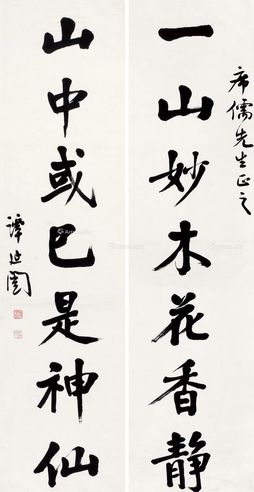 席儒先生正之
一山妙木花香静
山中或已是神仙
譚延闓